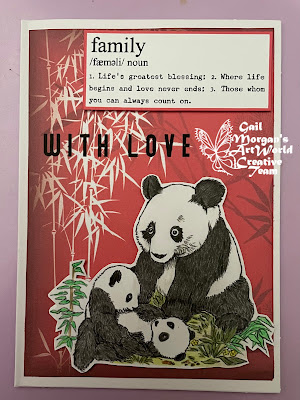 family
/fæməli/ noun
1. Life's greatest blessing; 2. Where life
begins and love never ends; 3. Those whom
you can always count on.
WITH LOVE
Gail
Morgan's
ArtWorld
Creative
Team